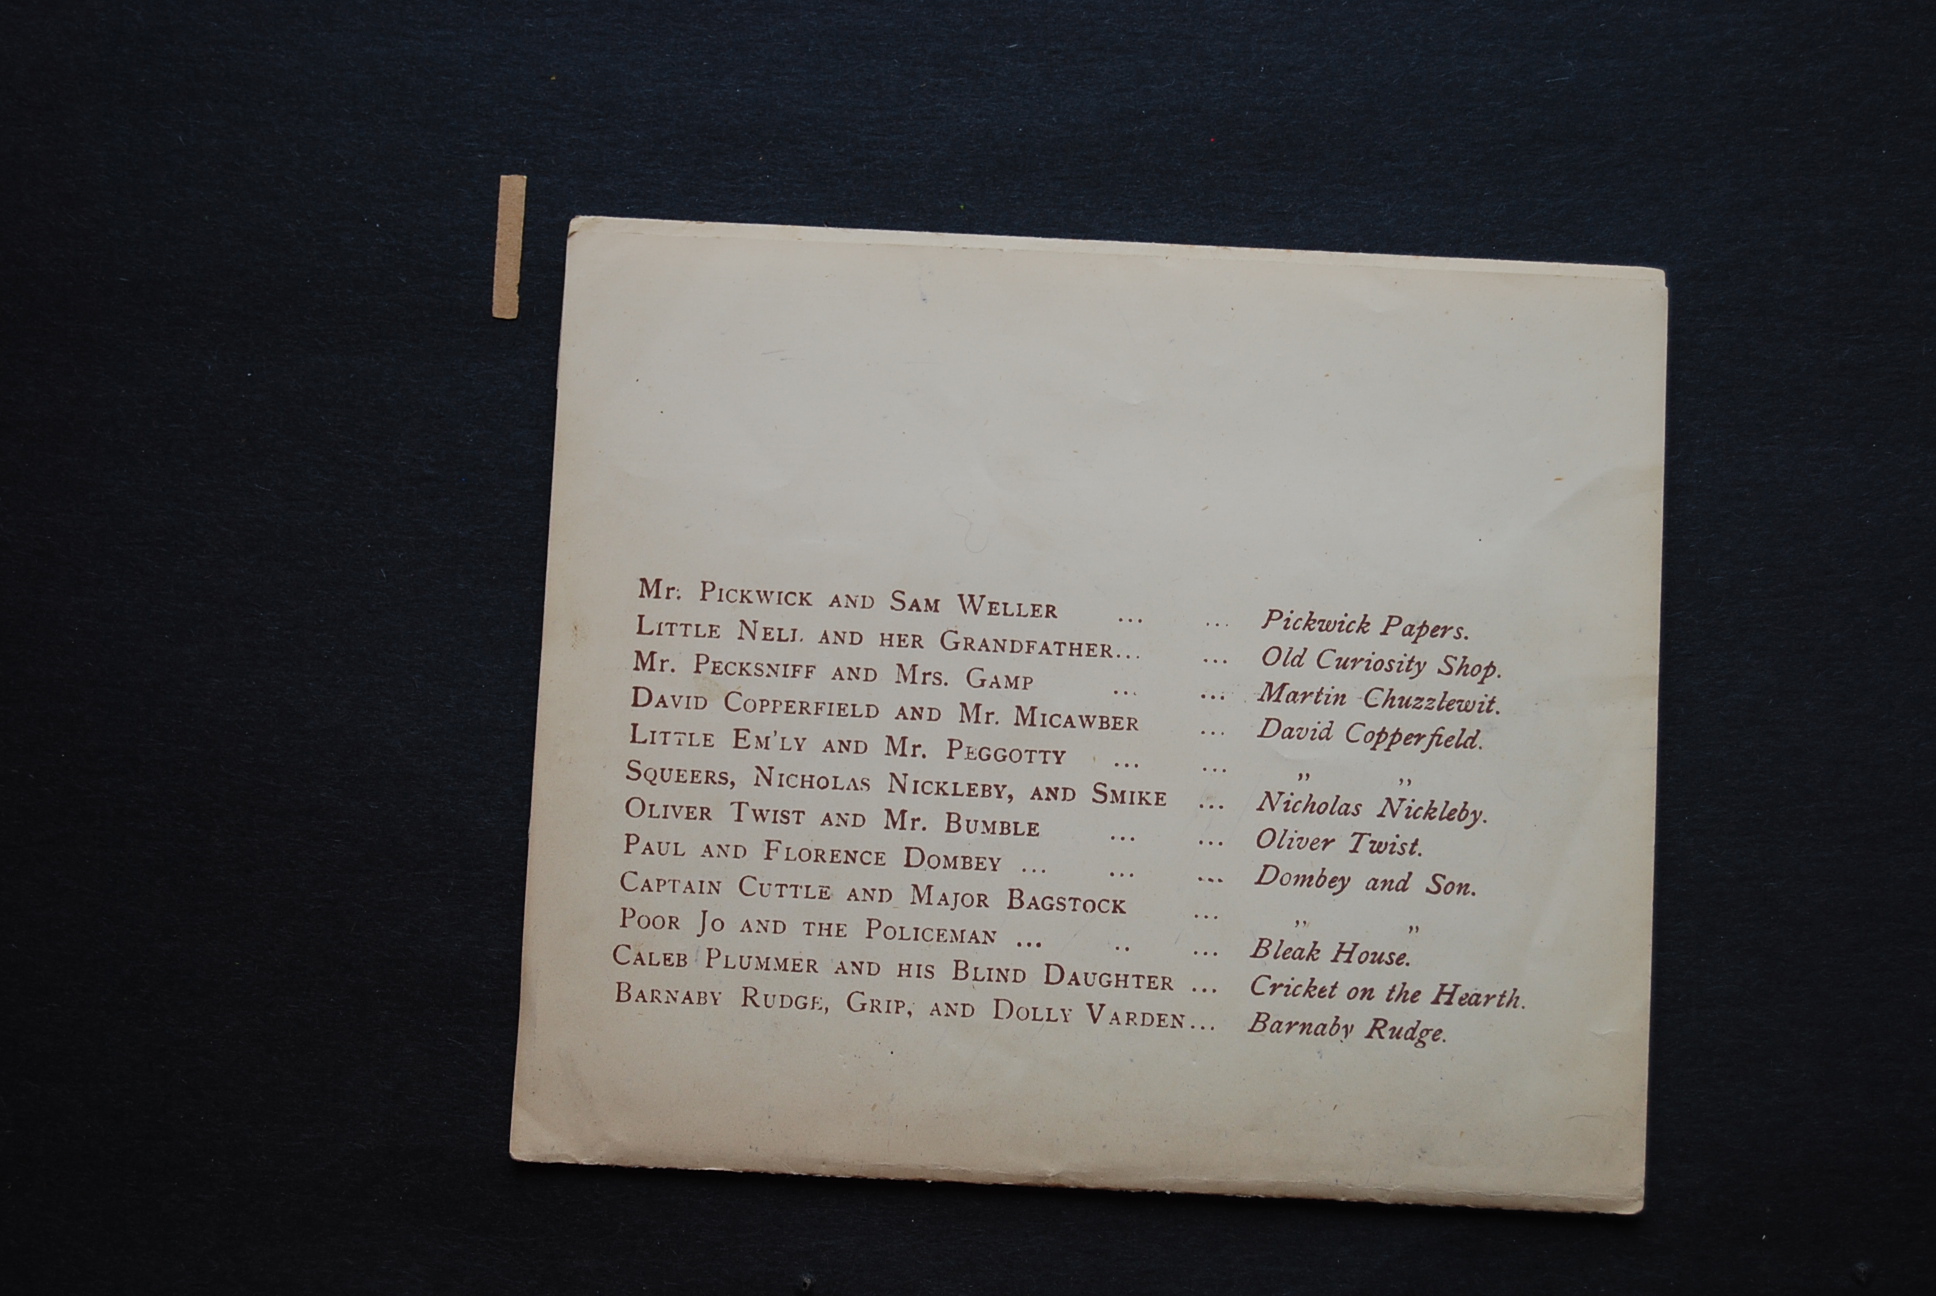 Mr. Pickwick and Sam Weller ... ... Pickwick Papers.
Little Nell and her Grandfather... ... Old Curiosity Shop.
Mr. Pecksniff and Mrs. Gamp ... ... Martin Chuzzlewit.
David Copperfield and Mr. Micawber ... David Copperfield.
Little Em'ly and Mr. Peggotty ... ... „ „
Squeers, Nicholas Nickleby, and Smike ... Nicholas Nickleby.
Oliver Twist and Mr. Bumble ... ... Oliver Twist.
Paul and Florence Dombey ... ... ... Dombey and Son.
Captain Cuttle and Major Bagstock ... „ „
Poor Jo and the Policeman ... .. ... Bleak House.
Caleb Plummer and his Blind Daughter ... Cricket on the Hearth.
Barnaby Rudge, Grip, and Dolly Varden... Barnaby Rudge.